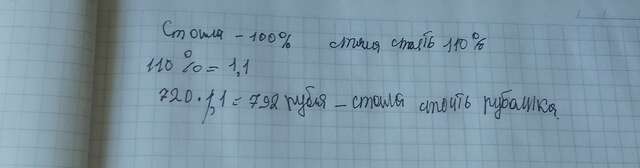 Стоила - 100% стала стоить 110%
110% = 1,1
720 · 1,1 = 792 рубля - стала стоить рубашка.